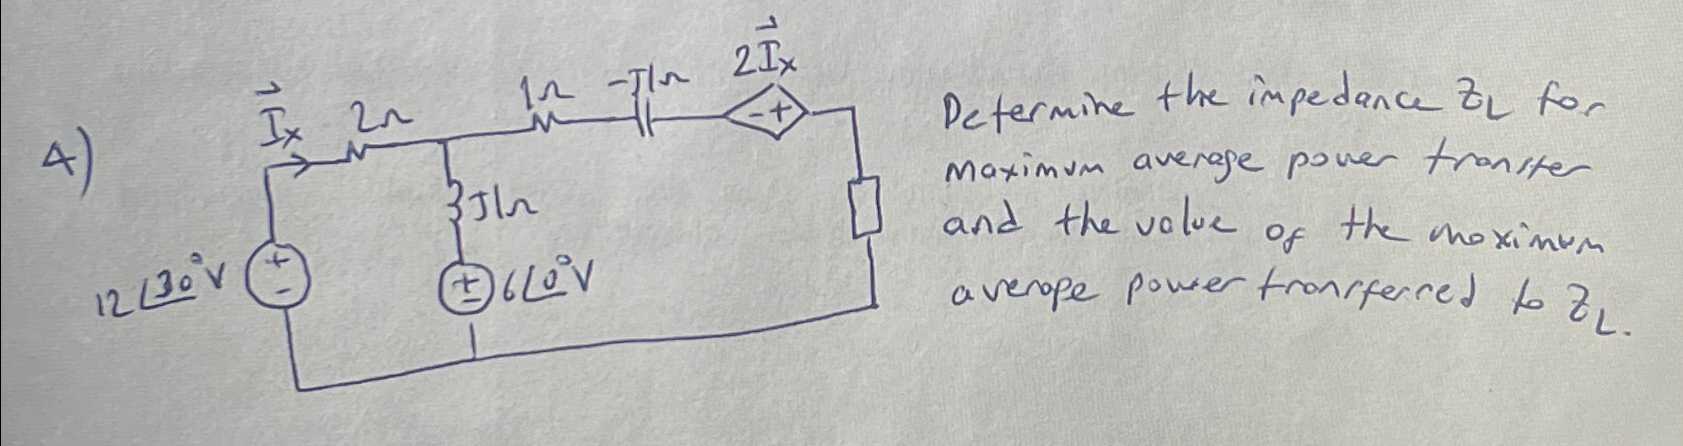 4)
I⃗x
2Ω
1Ω
-J1Ω
2I⃗x
- +
J1Ω
12∠30°V
+
-
+
-
6∠0°V
Determine the impedance ZL for
maximum average power transfer
and the value of the maximum
average power transferred to ZL.